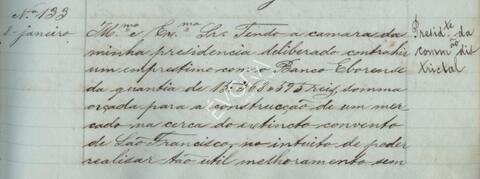 Nº 133
8 janeiro
Illmo e Exmo Snr Tendo a camara da
minha presidencia deliberado contrahir
um emprestimo com o Banco Eborense
da quantia de 15:363$595 reis, somma
orçada para a construcção de um mer-
cado na cerca do extincto convento
de São Francisco, no intuito de poder
realisar tão util melhoramento sem
Presidte da
commão dis
trictal